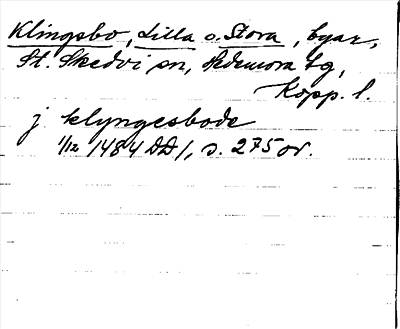 Klingsbo, Lilla o. Stora, byar,
St. Skedvi sn, Hedemora tg,
Kopp. l.
j klyngesbode
1/12 1484 DD 1, s. 275 or.